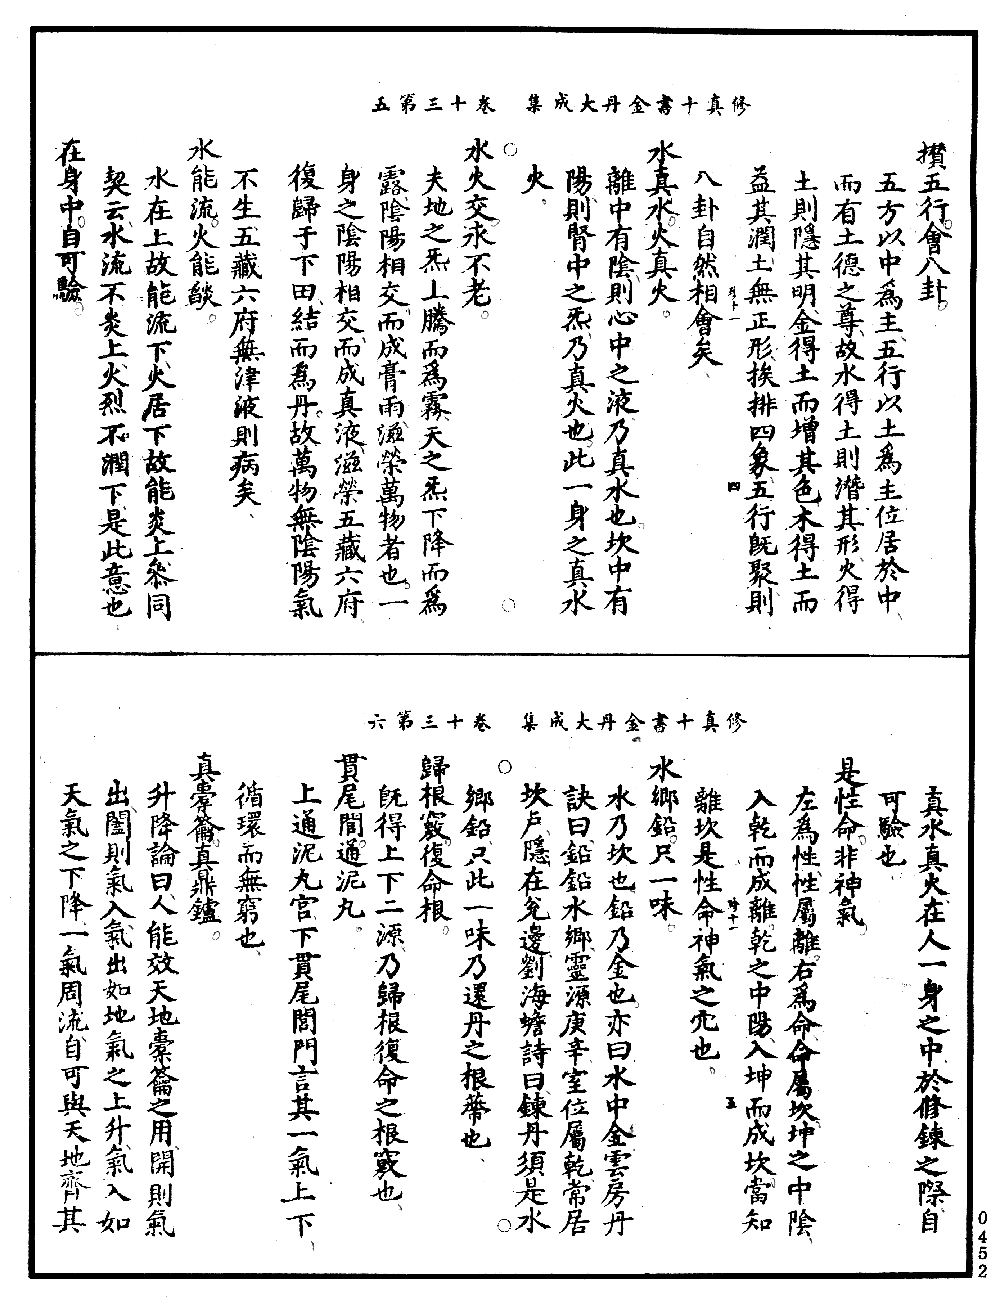 修真十書金丹大成集　卷十三第五
攅五行。會八卦。
五方以中爲主、五行以土爲主、位居於中、
而有土德之尊、故水得土則潛其形、火得
土則隱其明、金得土而增其色、木得土而
益其潤、土無正形、挨排四象、五行旣聚、則
八卦自然相會矣、
水真水。火真火。
離中有陰、則心中之液、乃真水也、坎中有
陽、則腎中之炁、乃真火也、此一身之真水
火、
水火交。永不老。
夫地之炁上騰而爲霧、天之炁下降而爲
露、陰陽相交、而成膏雨、滋榮萬物者也。一
身之陰陽相交、而成真液、滋榮五藏六府、
復歸于下田、結而爲丹。故萬物無陰陽氣
不生、五藏六府無津液則病矣、
水能流。火能燄。
水在上故能流下、火居下故能炎上、叅同
契云、水流不炎上、火烈不潤下、是此意也、
在身中。自可驗。
修真十書金丹大成集　卷十三第六
真水真火、在人一身之中、於修鍊之際、自
可驗也、
是性命。非神氣。
左爲性、性屬離。右爲命、命屬坎、坤之中陰
入乾而成離、乾之中陽入坤而成坎、當知
離坎是性命神氣之宂也。
水鄉鉛。只一味。
水乃坎也、鉛乃金也、亦曰水中金、雲房丹
訣曰、鉛鉛水鄉靈源、庚辛室位屬乾、常居
坎戶、隱在兌邊、劉海蟾詩曰、鍊丹須是水
鄉鉛、只此一味、乃還丹之根蔕也、
歸根竅。復命根。
旣得上下二源、乃歸根復命之根竅也、
貫尾閭。通泥丸。
上通泥丸宮、下貫尾閭門、言其一氣上下、
循環而無窮也、
真橐籥。真鼎鑪。
升降論曰、人能效天地橐籥之用、開則氣
出、闔則氣入、氣出如地氣之上升、氣入如
天氣之下降、一氣周流、自可與天地齊其
0452